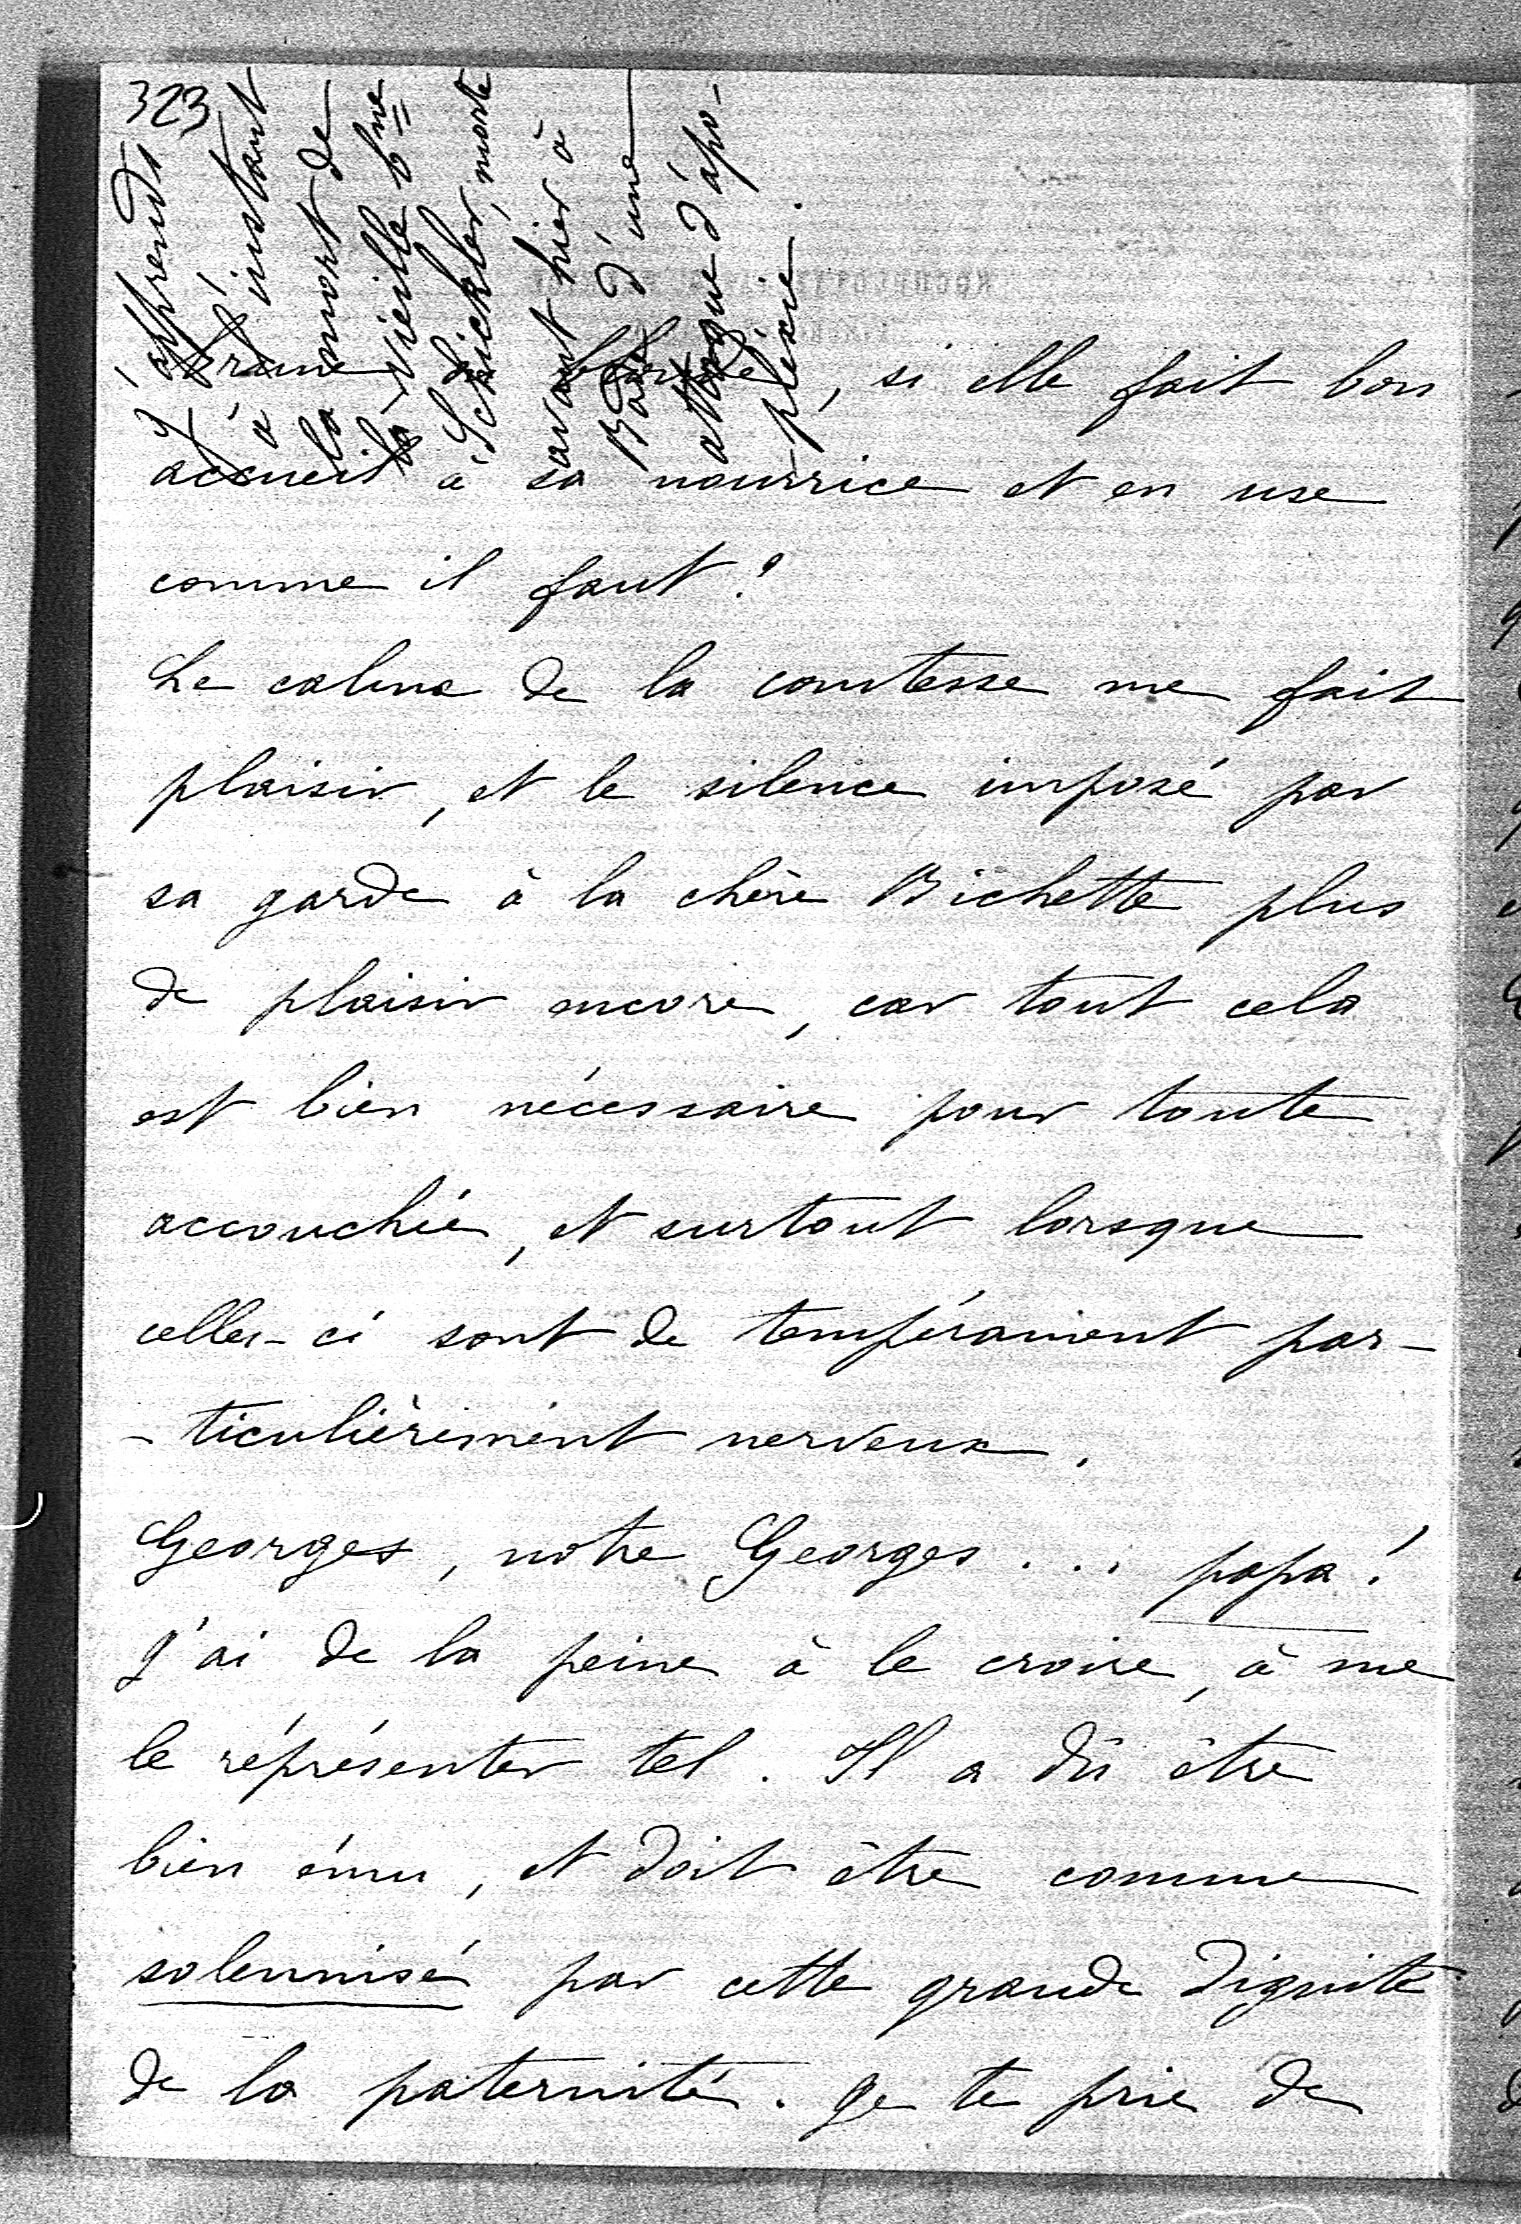 323
J'apprends
à l'instant
la mort de
la vieille bne
Schickler, morte
avant hier à
Bade d'une
attaque d'apo-
plexie.
brune ou blonde, si elle fait bon
accueil à sa nourrice et en use
comme il faut?
Le calme de la comtesse me fait
plaisir, et le silence imposé par
sa garde à la chère Bichette plus
de plaisir encore, car tout cela
est bien nécessaire pour toute
accouchée, et surtout lorsque
celles-ci sont de tempérament par-
-ticulièrement nerveux.
Georges, notre Georges... papa!
J'ai de la peine à le croire, à me
le réprésenter tel. Il a dû être
bien ému, et doit être comme
solennisé par cette grande dignité
de la paternité. Je te prie de